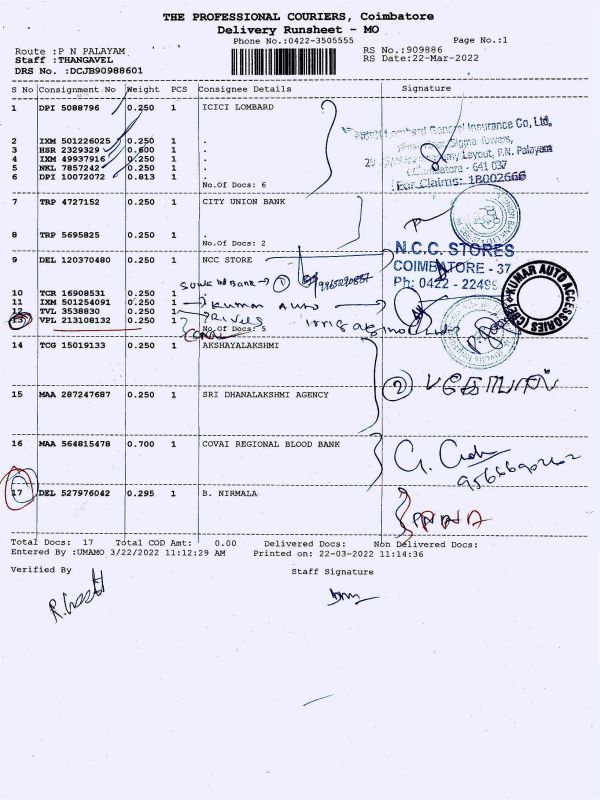 THE PROFESSIONAL COURIERS, Coimbatore
Delivery Runsheet - MO
Phone No.:0422-3505555 Page No.:1
Route :P N PALAYAM RS No.:909886
Staff :THANGAVEL RS Date:22-Mar-2022
DRS No. :DCJB90988601
S No Consignment No Weight PCS Consignee Details Signature
1 DPI 5088796 0.250 1 ICICI LOMBARD
2 IXM 501226025 0.250 1 .
3 HSR 2329329 0.600 1 .
4 IXM 49937916 0.250 1 .
5 NKL 7857242 0.250 1 .
6 DPI 10072072 0.813 1 .
No.Of Docs: 6
Lombard General Insurance Co. Ltd,
Layout, P.N. Palayam
Coimbatore - 641 037
For Claims: 18002666
7 TRP 4727152 0.250 1 CITY UNION BANK
8 TRP 5695825 0.250 1 .
No.Of Docs: 2
9 DEL 120370480 0.250 1 NCC STORE
N.C.C. STORES
COIMBATORE - 37
Ph: 0422 - 22495
KUMAR AUTO ACCESSORIES (CBE)
Bank → 1
10 TCR 16908531 0.250 1 .
11 IXM 501254091 0.250 1 → Kumar Auto
12 TVL 3538830 0.250 1
13 VPL 213108132 0.250 1
No.Of Docs: 5
14 TCG 15019133 0.250 1 AKSHAYALAKSHMI
2
15 MAA 287247687 0.250 1 SRI DHANALAKSHMI AGENCY
16 MAA 564815478 0.700 1 COVAI REGIONAL BLOOD BANK
17 DEL 527976042 0.295 1 B. NIRMALA
Total Docs: 17 Total COD Amt: 0.00 Delivered Docs: Non Delivered Docs:
Entered By :UMAMO 3/22/2022 11:12:29 AM Printed on: 22-03-2022 11:14:36
Verified By Staff Signature